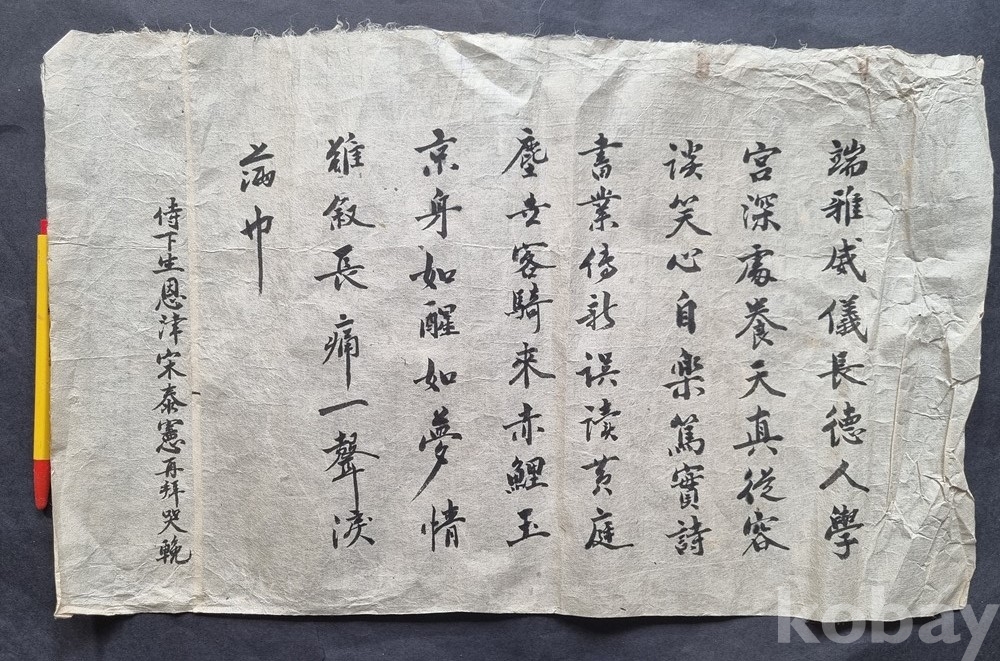 端雅威儀長德人學
宮深處養天真從容
談笑心自樂篤實詩
書業傳新誤讀黃庭
塵世客騎來赤鯉玉
京身如醒如夢情
難叙長痛一聲淚
滿巾
侍下生恩津宋泰憲再拜哭輓
kobay